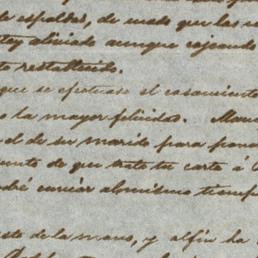 de espaldas, de modo que las
estoy aliviado aunque cojeando
to restablecido.
que se efectuase el casamiento
o la mayor felicidad. Man
d de su marido para pone
cuento de que trata tu carta á
dré enviar al mismo tiemp
este de la mano, y al fin ha